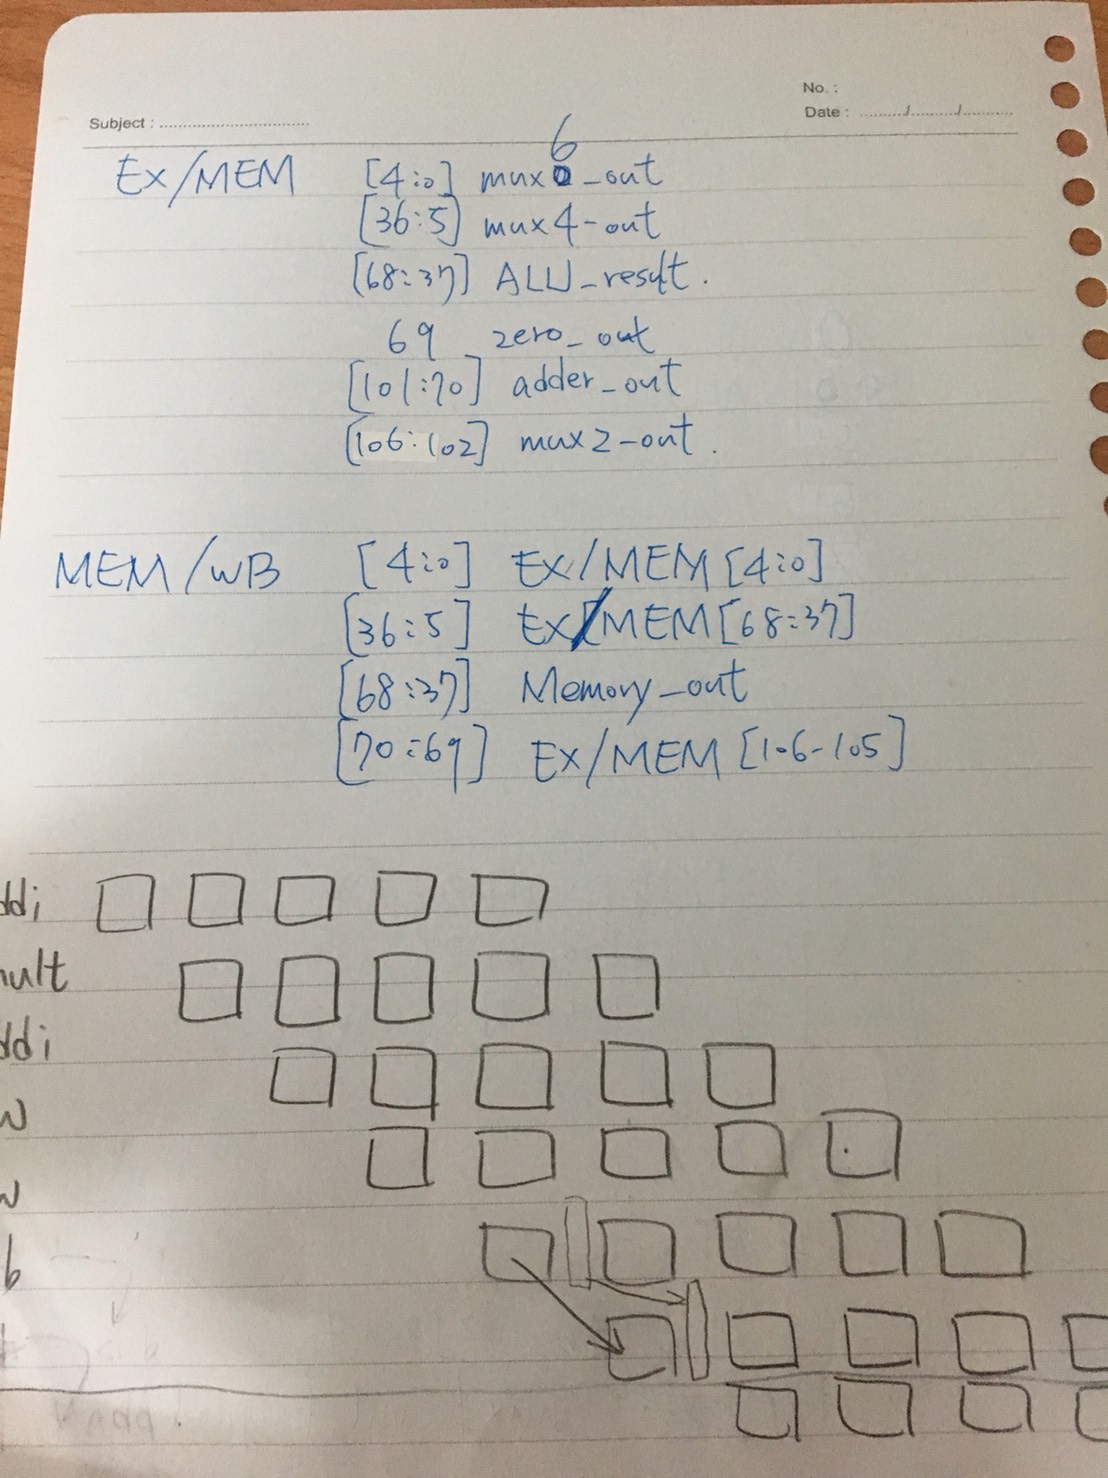 No. :
Subject :
Date : ......../......../........
Ex/MEM [4:0] mux6_out
[36:5] mux4-out
[68:37] ALU_result.
69 zero_out
[101:70] adder_out
[106:102] mux2-out.
MEM/WB [4:0] Ex/MEM[4:0]
[36:5] Ex/MEM[68:37]
[68:37] Memory_out
[70:69] Ex/MEM [106-105]
ddi
ult
ddi
w
w
b